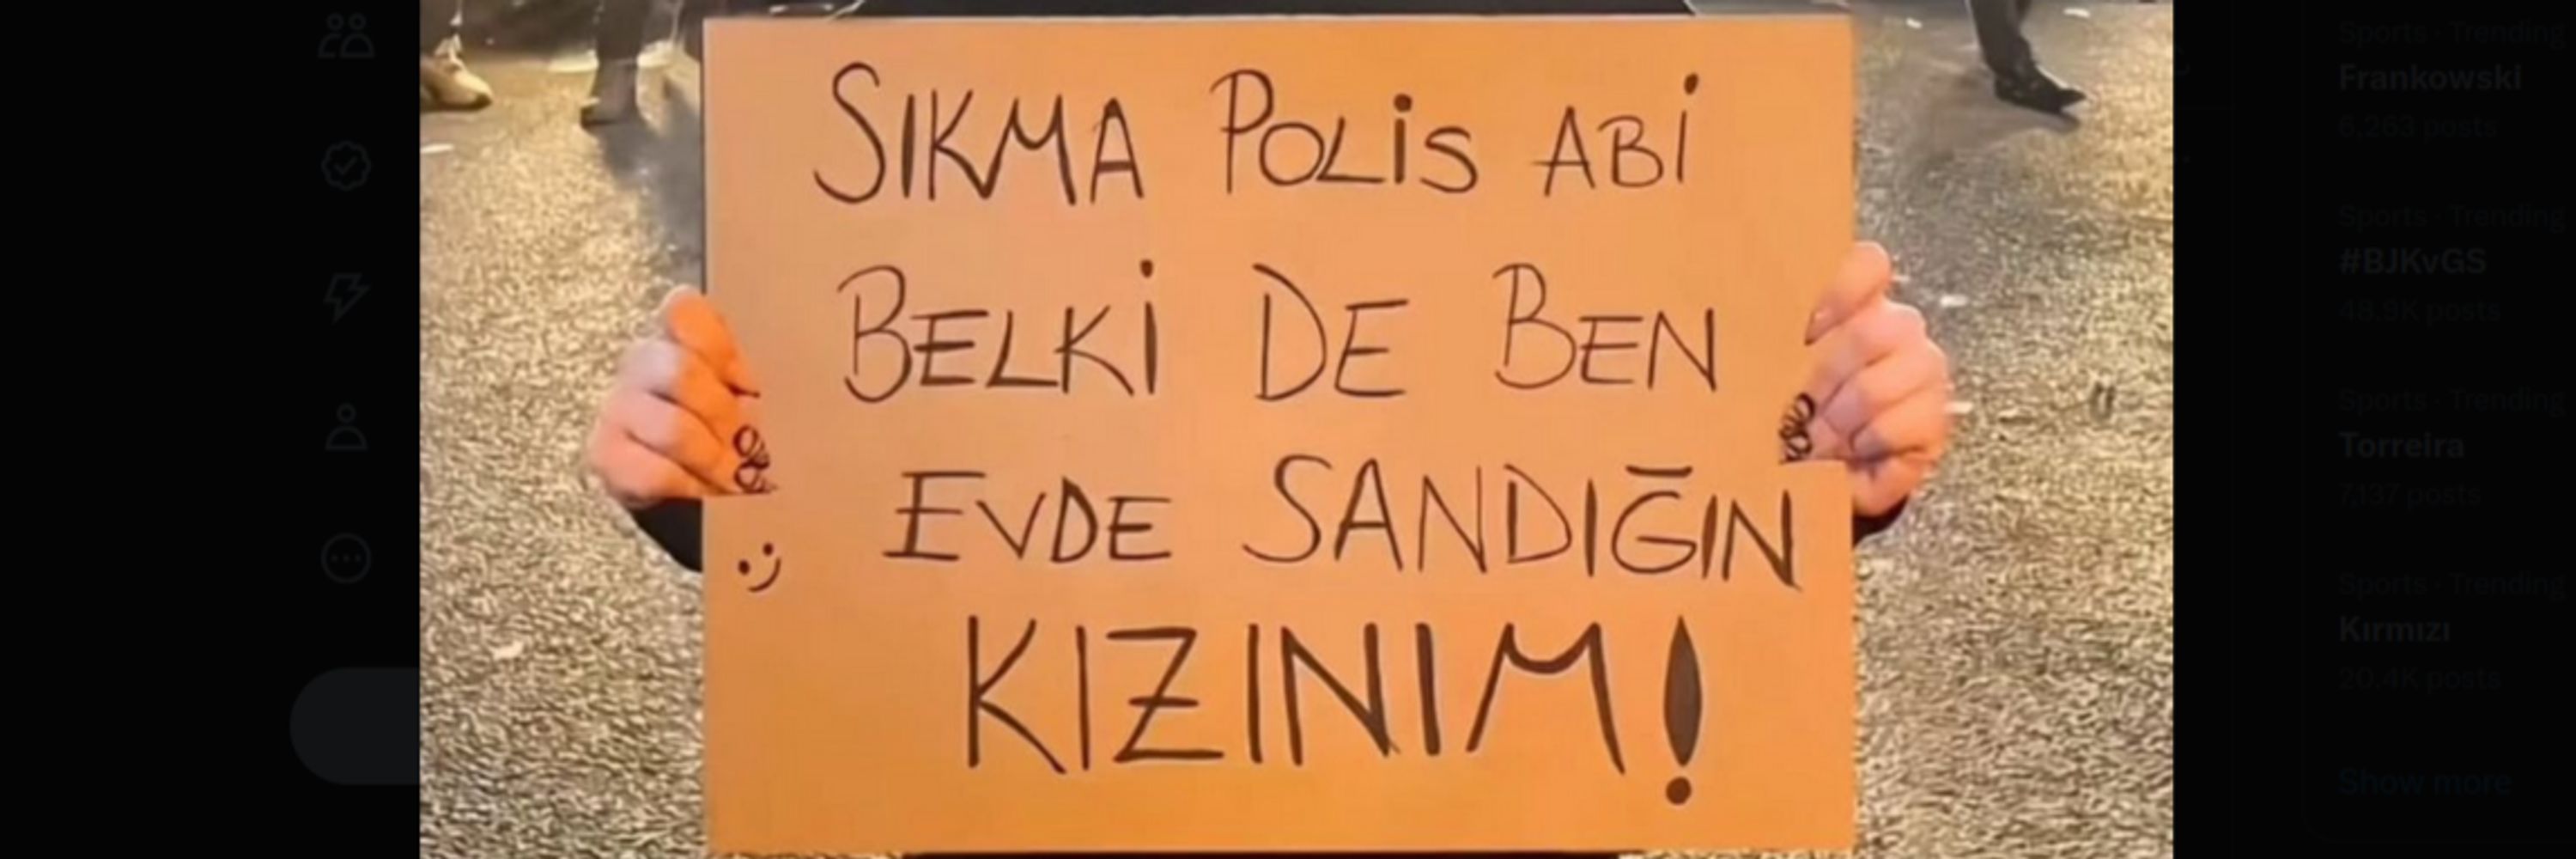 SIKMA POLİS ABİ
BELKİ DE BEN
EVDE SANDIĞIN
KIZINIM!
:)
Sports · Trending
Frankowski
6,263 posts
Sports · Trending
#BJKvGS
48.9K posts
Sports · Trending
Torreira
7,137 posts
Sports · Trending
Kırmızı
20.4K posts
Show more